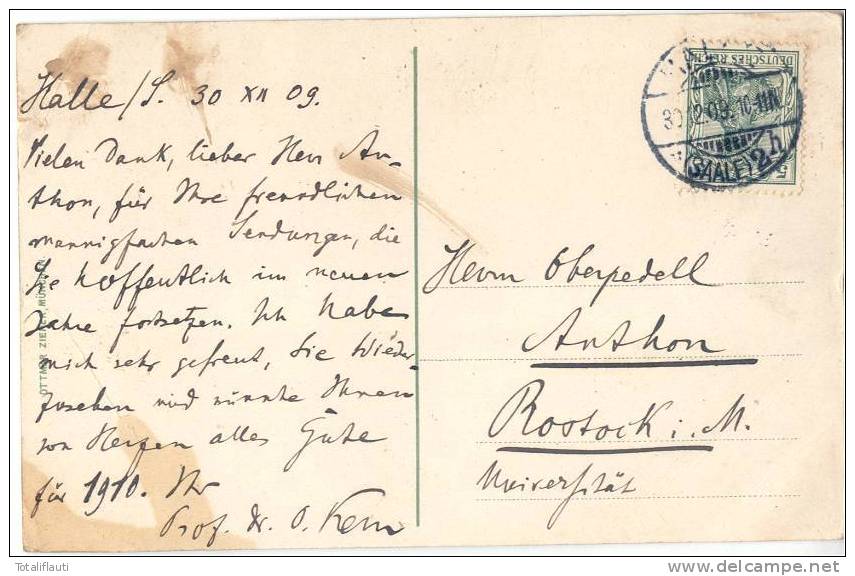 Halle/S. 30 XII 09.
Vielen Dank, lieber Herr An-
thon, für Ihre freundlichen
mannigfachen Sendungen, die
Sie hoffentlich im neuen
Jahre fortsetzen. Ich habe
mich sehr gefreut, Sie wieder
zusehen und wünsche Ihnen
von Herzen alles Gute
für 1910. Ihr
Prof. Dr. O. Kern
OTTMAR ZIEHER, MÜNCHEN
DEUTSCHES REICH
5
HALLE
30.12.09. 10-11N
(SAALE) 2h
Herrn Oberpedell
Anthon
Rostock i. M.
Universität
Totaliflauti
delcampe.net